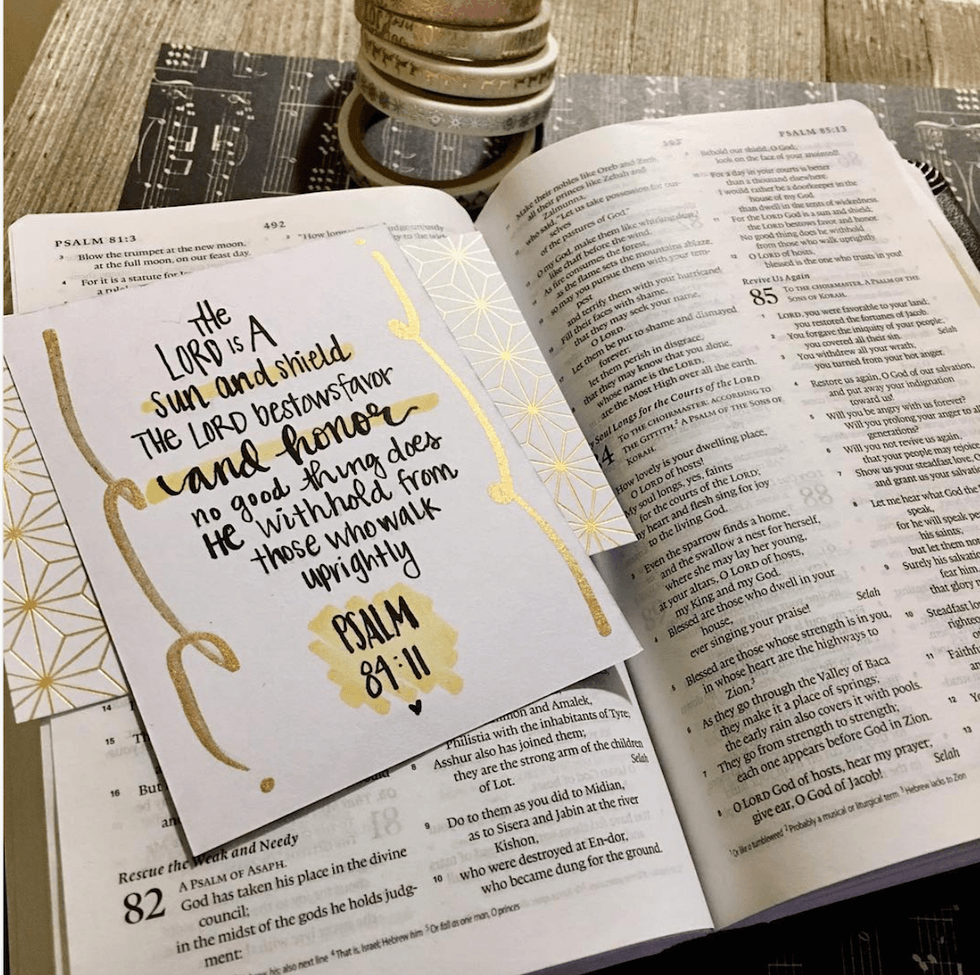 PSALM 81:3
492
3 Blow the trumpet at the new moon,
at the full moon, on our feast day.
4 For it is a statute for
a rule
2 "How long
THE
LORD IS A
sun and shield
THE LORD bestows favor
and honor
no good thing does
HE withhold from
those who walk
uprightly
PSALM
84:11
14
15
16 But
an
Rescue the Weak and Needy
82
A PSALM OF ASAPH.
God has taken his place in the divine
council;
in the midst of the gods he holds judg-
ment:
and Amalek,
Philistia with the inhabitants of Tyre;
8 Asshur also has joined them;
they are the strong arm of the children
of Lot.
Selah
9 Do to them as you did to Midian,
as to Sisera and Jabin at the river
Kishon,
10 who were destroyed at En-dor,
who became dung for the ground.
his; also next line 4 That is, Israel; Hebrew him 5 Or fall as one man, O princes
493
PSALM 85:13
Make their nobles like Oreb and Zeeb,
all their princes like Zebah and
Zalmunna,
who said, "Let us take possession for our-
selves
of the pastures of God."
O my God, make them like whirling dust,
like chaff before the wind.
As fire consumes the forest,
as the flame sets the mountains ablaze,
so may you pursue them with your tem-
pest
and terrify them with your hurricane!
Fill their faces with shame,
that they may seek your name,
O LORD.
Let them be put to shame and dismayed
forever;
let them perish in disgrace,
that they may know that you alone,
whose name is the LORD,
are the Most High over all the earth.
Soul Longs for the Courts of the LORD
4
TO THE CHOIRMASTER: ACCORDING TO
THE GITTITH.2 A PSALM OF THE SONS OF
KORAH.
How lovely is your dwelling place,
O LORD of hosts!
My soul longs, yes, faints
for the courts of the LORD;
my heart and flesh sing for joy
to the living God.
3 Even the sparrow finds a home,
and the swallow a nest for herself,
where she may lay her young,
at your altars, O LORD of hosts,
my King and my God.
4 Blessed are those who dwell in your
house,
ever singing your praise!
Selah
5 Blessed are those whose strength is in you,
in whose heart are the highways to
Zion.3
6 As they go through the Valley of Baca
they make it a place of springs;
the early rain also covers it with pools.
7 They go from strength to strength;
each one appears before God in Zion.
8 O LORD God of hosts, hear my prayer;
give ear, O God of Jacob!
Selah
1 Or like a tumbleweed 2 Probably a musical or liturgical term 3 Hebrew lacks to Zion
9 Behold our shield, O God;
look on the face of your anointed!
10 For a day in your courts is better
than a thousand elsewhere.
I would rather be a doorkeeper in the
house of my God
than dwell in the tents of wickedness.
11 For the LORD God is a sun and shield;
the LORD bestows favor and honor.
No good thing does he withhold
from those who walk uprightly.
12 O LORD of hosts,
blessed is the one who trusts in you!
Revive Us Again
85
TO THE CHOIRMASTER. A PSALM OF THE
SONS OF KORAH.
1 LORD, you were favorable to your land;
you restored the fortunes of Jacob.
2 You forgave the iniquity of your people;
you covered all their sin.
Selah
3 You withdrew all your wrath;
you turned from your hot anger.
4 Restore us again, O God of our salvation,
and put away your indignation
toward us!
5 Will you be angry with us forever?
Will you prolong your anger to
generations?
6 Will you not revive us again,
that your people may rejoice
7 Show us your steadfast love, O
and grant us your salvation
8 Let me hear what God the
speak,
for he will speak
his saints;
but let them not
9 Surely his salvation
fear him,
that glory
10 Steadfast
11
12
13